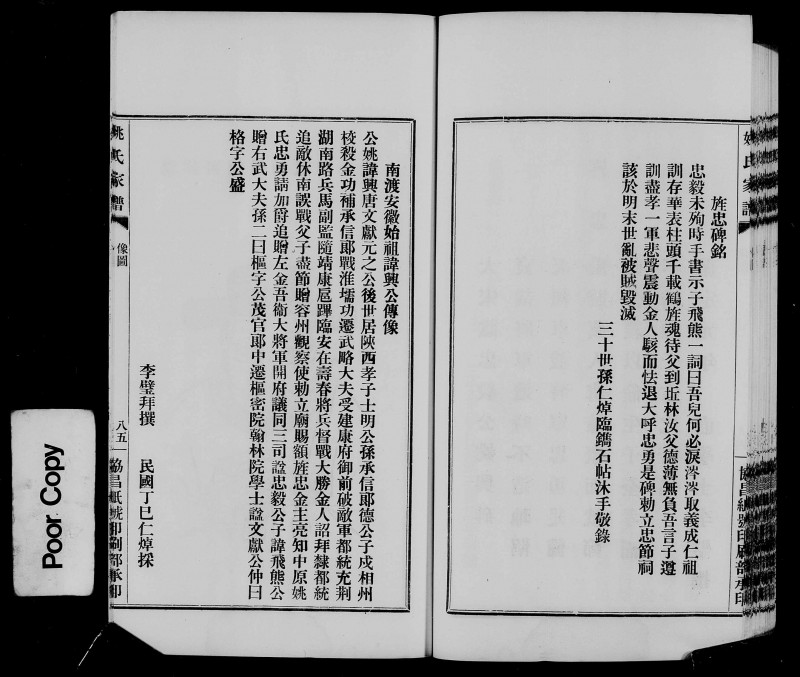 姚氏家譜
旌忠碑銘
忠毅未殉時手書示子飛熊一詞曰吾兒何必淚滂滂取義成仁祖
訓存華表柱頭千載鶴旌魂待父到坵林汝父德薄無負吾言子遵
訓盡孝一軍悲聲震動金人駭而怯退大呼忠勇是碑勅立忠節祠
該於明末世亂被賊毀滅
三十世孫仁焯臨鐫石帖沐手敬錄
協昌紙號印刷部承印
南渡安徽始祖諱興公傳像
公姚諱興唐文獻元之公後世居陝西孝子士明公孫承信郎德公子戍相州
校殺金功補承信郎戰淮壖功遷武略大夫受建康府御前破敵軍都統充荆
湖南路兵馬副監隨靖康扈蹕臨安在壽春將兵督戰大勝金人詔拜隸都統
追敵休南誤戰父子盡節贈容州觀察使勅立廟賜額旌忠金主亮知中原姚
氏忠勇請加爵追贈左金吾衛大將軍開府議同三司諡忠毅公子諱飛熊公
贈右武大夫孫二曰樞字公茂官郎中遷樞密院翰林院學士諡文獻公仲曰
格字公盛
李璧拜撰 民國丁巳仁焯採
姚氏家譜
像圖
八五
協昌紙號印刷部承印
Poor Copy